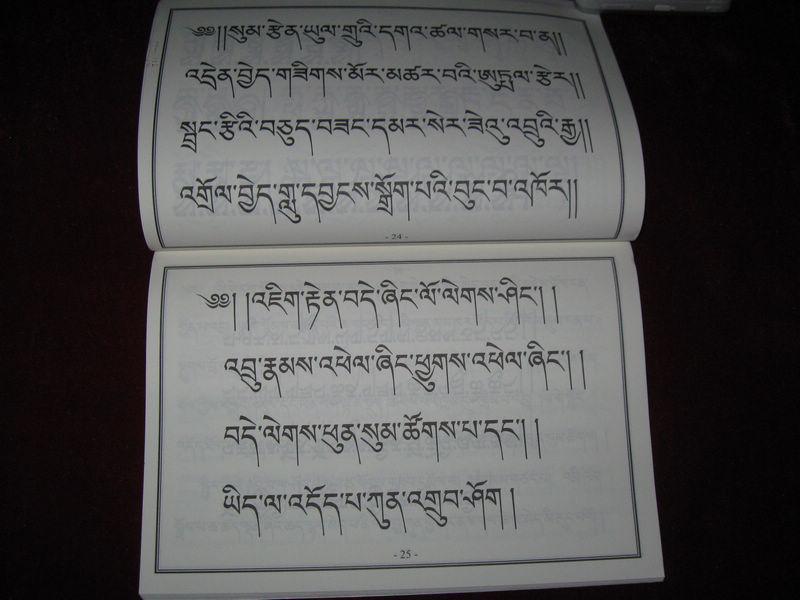 ༄༅།།སུམ་རྩེན་ཡུལ་གྲུའི་དགའ་ཚལ་གསར་བ་ན།།
འདྲེན་བྱེད་གཟིགས་མོར་མཚར་བའི་ཨུཏྤལ་རྩེར།།
སྦྲང་རྩིའི་བཅུད་བཟང་དམར་སེར་ཟེའུ་འབྲུའི་རྒྱ།།
འགྲོལ་བྱེད་གླུ་དབྱངས་སྒྲོག་པའི་བུང་བ་འཁོར།།
- 24 -
༄༅། །འཇིག་རྟེན་བདེ་ཞིང་ལོ་ལེགས་ཤིང་། །
འབྲུ་རྣམས་འཕེལ་ཞིང་ཕྱུགས་འཕེལ་ཞིང་། །
བདེ་ལེགས་ཕུན་སུམ་ཚོགས་པ་དང་། །
ཡིད་ལ་འདོད་པ་ཀུན་འགྲུབ་ཤོག །
- 25 -